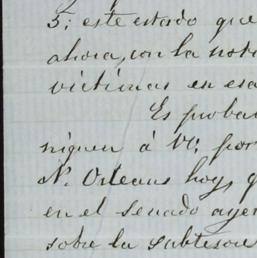 5; este estado que
ahora, con la nota
victimas en esa
Es proba
niquen á V; por
N. Orleans hoy, q
en el senado ayer
sobre la subtesore